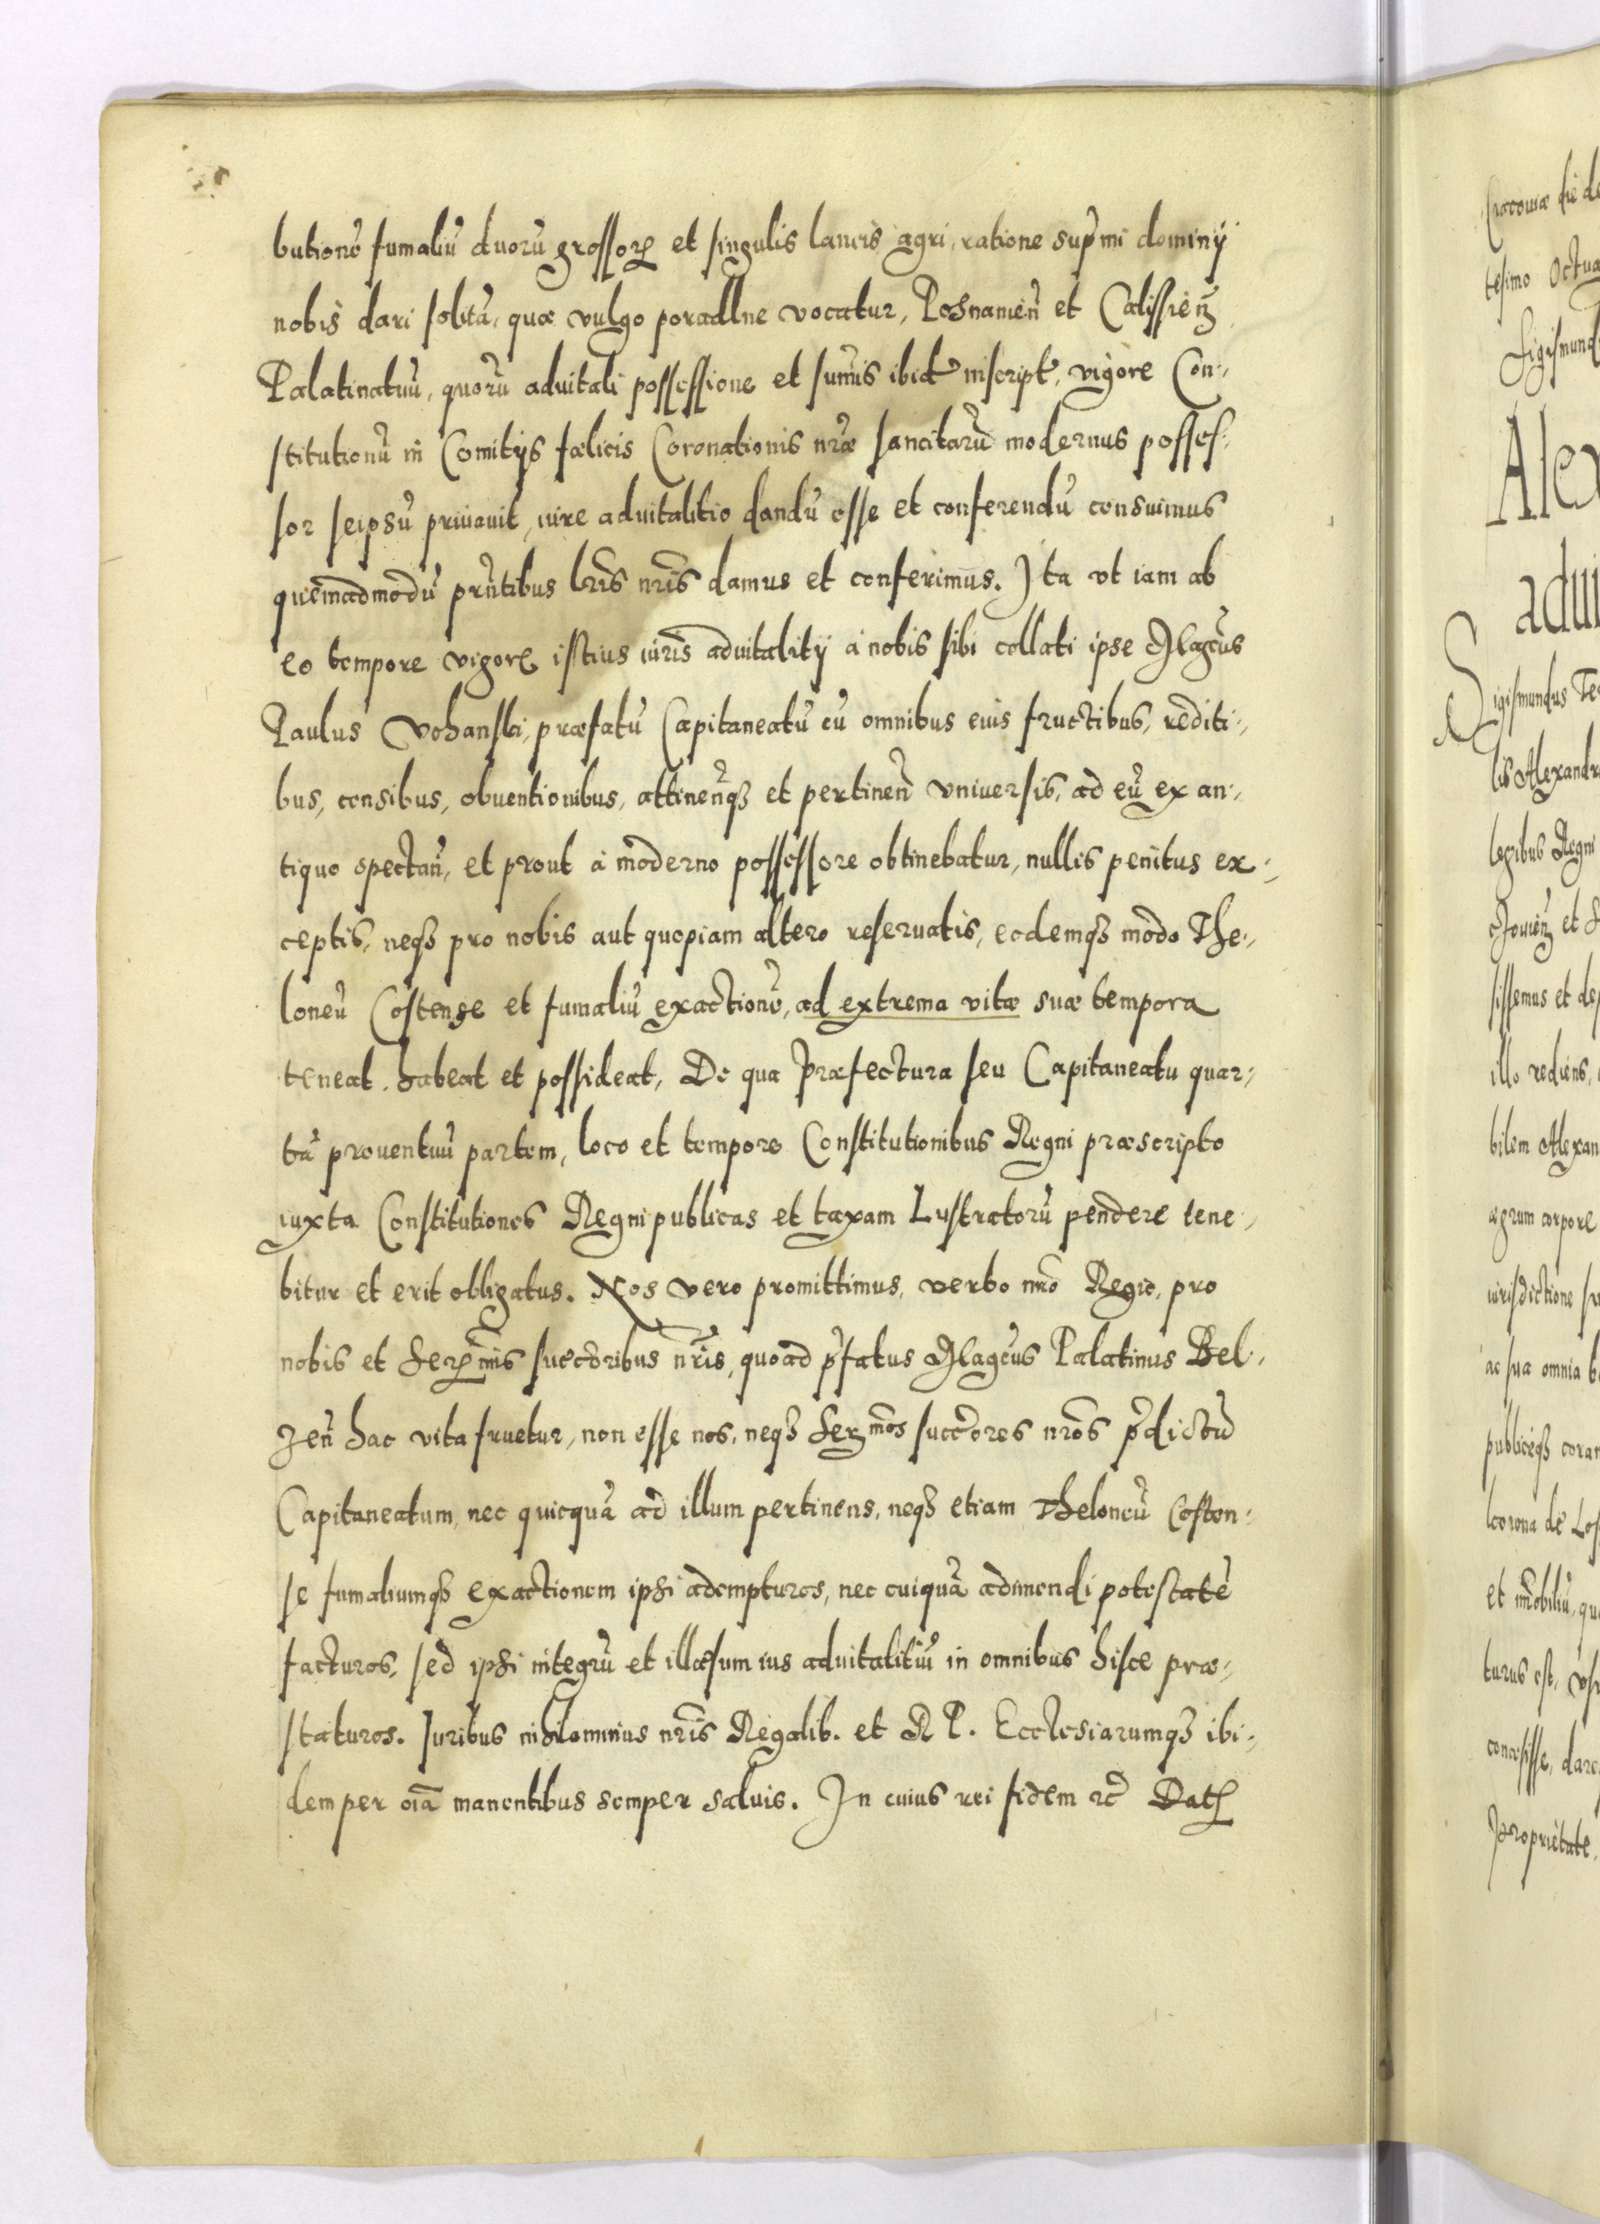 butionē fumaliū duorū grossorȩ et singulis laneis agri, ratione supmi dominij
nobis dari solitā, quæ vulgo poradlne vocatur, Posnanien̄ et Calissien̄
Palatinatuū, quorū aduitali possessione et sumis ibid inscript, vigore Con-
stitutionū in Comitijs fælicis Coronationis nræ sancitarū modernus posses-
sor seipsū priuauit, iure aduitalitio dandū esse et conferendū censuimus
quemadmodū prntibus lris nris damus et conferimus. Ita vt iam ab
eo tempore vigore istius iuris aduitalitij à nobis sibi collati ipse Magcus
Paulus Vchanski, præfatū Capitaneatū cū omnibus eius fructibus, rediti-
bus, censibus, obuentionibus, attinenqȝ et pertinen̄ vniuersis, ad eū ex an-
tiquo spectan̄, et prout à moderno possessore obtinebatur, nullis penitus ex-
ceptis, neqȝ pro nobis aut quopiam altero reseruatis, eodemqȝ modo The-
loneū Costense et fumaliū exactionē, ad extrema vitæ suæ tempora
teneat, habeat et possideat, De qua Præfectura seu Capitaneatu quar-
tā prouentuū partem, loco et tempore Constitutionibus Regni præscripto
iuxta Constitutiones Regni publicas et taxam Lustratorū pendere tene-
bitur et erit obligatus. Nos vero promittimus, verbo nro Regio, pro
nobis et Sermis succoribus nris, quoad pfatus Magcus Palatinus Bel-
zen̄ hac vita fruetur, non esse nos, neqȝ Sermos succores nros pdictū
Capitaneatum, nec quicquā ad illum pertinens, neqȝ etiam Theloneū Costen-
se fumaliumqȝ exactionem ipsi adempturos, nec cuiquā adimendi potestatē
facturos, sed ipsi integrū et illæsum ius aduitalitiū in omnibus hisce præ-
staturos. Iuribus nihilominus nris Regalib. et R P. Ecclesiarumqȝ ibi-
dem per oiā manentibus semper saluis. In cuius rei fidem etc Dat
Cracouiæ die de
tesimo Octua
Sigismund
Alex
adui
Sigismundus Te
lis Alexandr
legibus Regni
et
sissemus et de
illo rediens,
bilem Alexan
ægrum corpore
iurisdictione su
ac sua omnia b
publiceqȝ coran
corona de Los
et mobiliū, qu
turus est,
concessisse, dare
Proprietate,